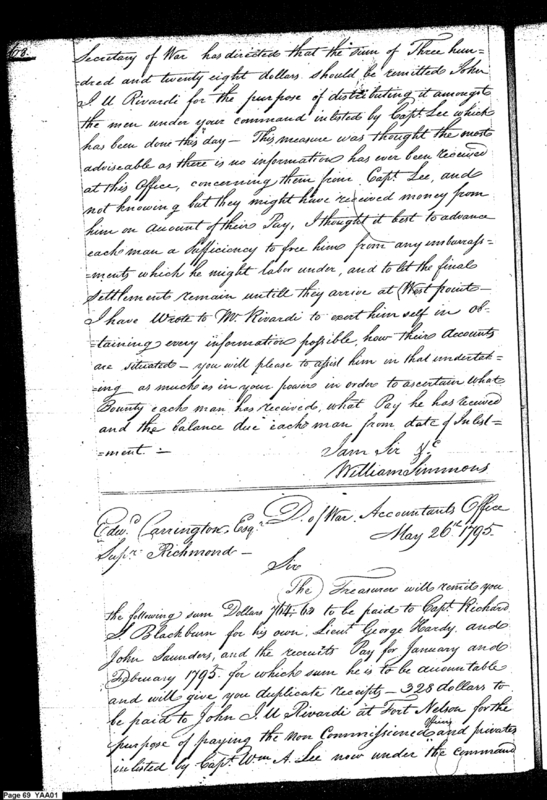 Secretary of War has directed that the sum of Three hun-
-dred and twenty eight dollars should be remitted John
J. U Rivardi for the purpose of distributing it amongst
the men under your command inlisted by Capt. Lee which
has been done this day – This measure was thought the most
adviseable as there is no information has ever been received
at this Office, concerning them from Capt. Lee, and
not knowing but they might have received money from
him on account of their Pay, I thought it best to advance
each man a Sufficiency to free him from any imbarass-
-ments which he might labor under, and to let the final
Settlement remain untill they arrive at West point –
I have Wrote to Mr. Rivardi to exert him self in ob-
-taining every information possible, how their Accounts
are situated – you will please to assist him in that undertak-
-ing as much as in your power in order to ascertain what
Bounty each man has received, what Pay he has received
and the balance due each man from date of Inlist-
-ment. –
I am Sir &c
William Simmons
Edwd. Carrington, Esqr.
D. of War, Accountants Office
May 26th. 1795.
Supr. Richmond –
Sir
The Treasurer will remit you
the following sum Dollars 764.62 to be paid to Capt. Richard
S. Blackburn for his own, Lieut. George Hardy, and
John Saunders, and the recruits Pay for January and
February 1795. for which sum he is to be accountable
and will give you duplicate receipts – 328 dollars to
be paid to John J. U Rivardi at Fort Nelson for the
purpose of paying the non Commissioned officers and privates
inlisted by Capt. Wm. A. Lee now under the command
Page 69 YAA01